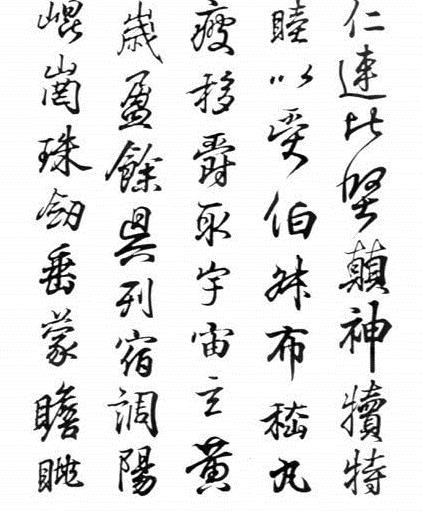 仁連比堅顛神犢特
睦以受伯叔布嵇丸
疲移爵取宇宙玄黄
歲盈餘昃列宿調陽
崐崗珠劍垂蒙瞻眺